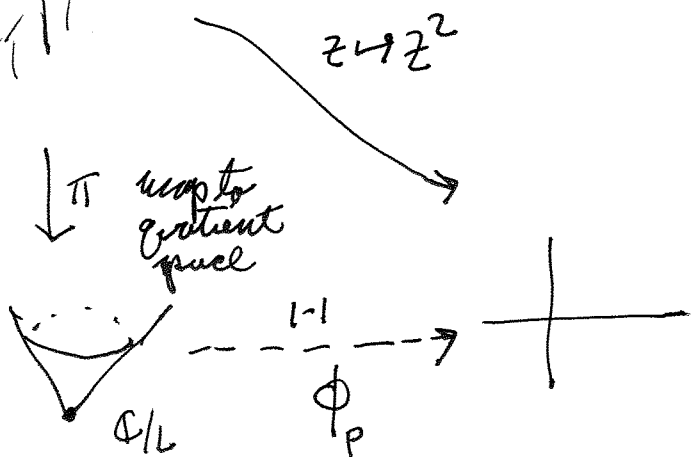 z ↦ z²
π map to
quotient
space
1-1
ϕ_p
ℂ/L